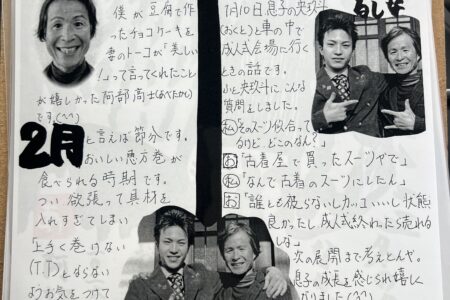 僕が豆腐で作
ったチョコケーキを
妻のトーコが「美しい
!」って言ってくれたこと
が嬉しかった阿部高士(あべたかし)
です(^^)
2月
と言えば節分です。
おいしい恵方巻が
食べられる時期です。
つい欲張って具材を
入れすぎてしまい
上手く巻けない
(T.T)とならない
ようお気をつけて
1月10日息子の央玖斗
(おくと)と車の中で
成人式会場に行く
ときの話です。
央玖斗にこんな
質問をしました。
私「そのスーツ似合って
るけど、どこのなん?」
お「古着屋で買ったスーツやで」
私「なんで古着のスーツにしたん」
お「誰とも被らないしカッコいいし状態
も良かったし成人式終わったら売れる
しな」
次の展開まで考えとんや。
息子の成長を感じられ嬉しく
なりました(^^)
るしな